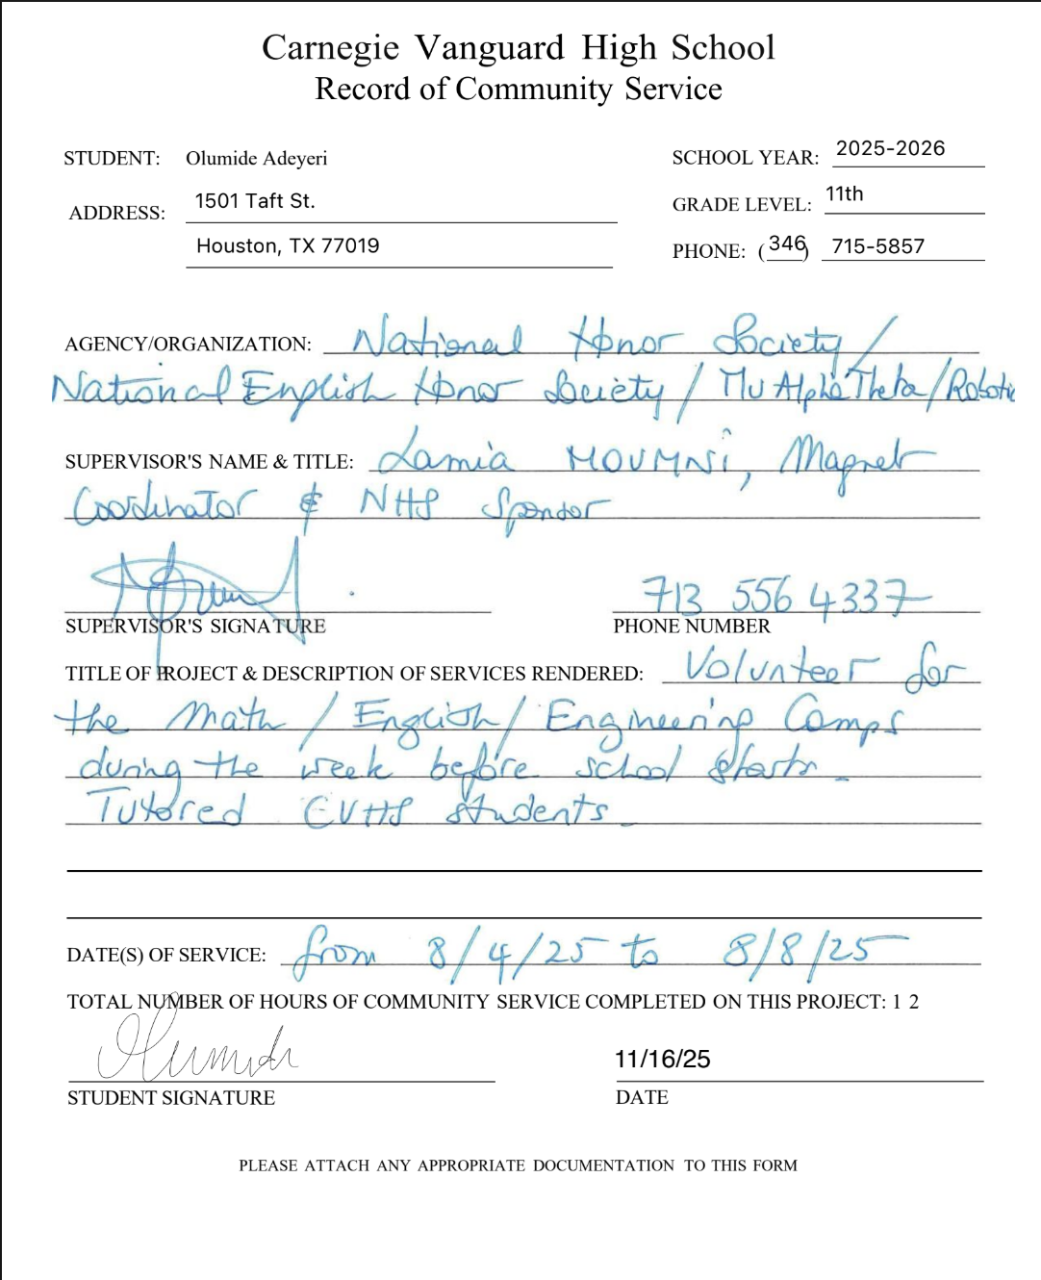 Carnegie Vanguard High School
Record of Community Service
STUDENT: Olumide Adeyeri
SCHOOL YEAR: 2025-2026
ADDRESS: 1501 Taft St.
GRADE LEVEL: 11th
Houston, TX 77019
PHONE: (346) 715-5857
AGENCY/ORGANIZATION: National Honor Society /
National English Honor Society / Mu Alpha Theta / Robotic
SUPERVISOR'S NAME & TITLE: Lamia MOUMNI, Magnet
Coordinator & NHS Sponsor
713 556 4337
SUPERVISOR'S SIGNATURE
PHONE NUMBER
TITLE OF PROJECT & DESCRIPTION OF SERVICES RENDERED: Volunteer for
the Math / English / Engineering Camps
during the week before school starts.
Tutored CVHS students.
DATE(S) OF SERVICE: from 8/4/25 to 8/8/25
TOTAL NUMBER OF HOURS OF COMMUNITY SERVICE COMPLETED ON THIS PROJECT: 1 2
Olumide
11/16/25
STUDENT SIGNATURE
DATE
PLEASE ATTACH ANY APPROPRIATE DOCUMENTATION TO THIS FORM